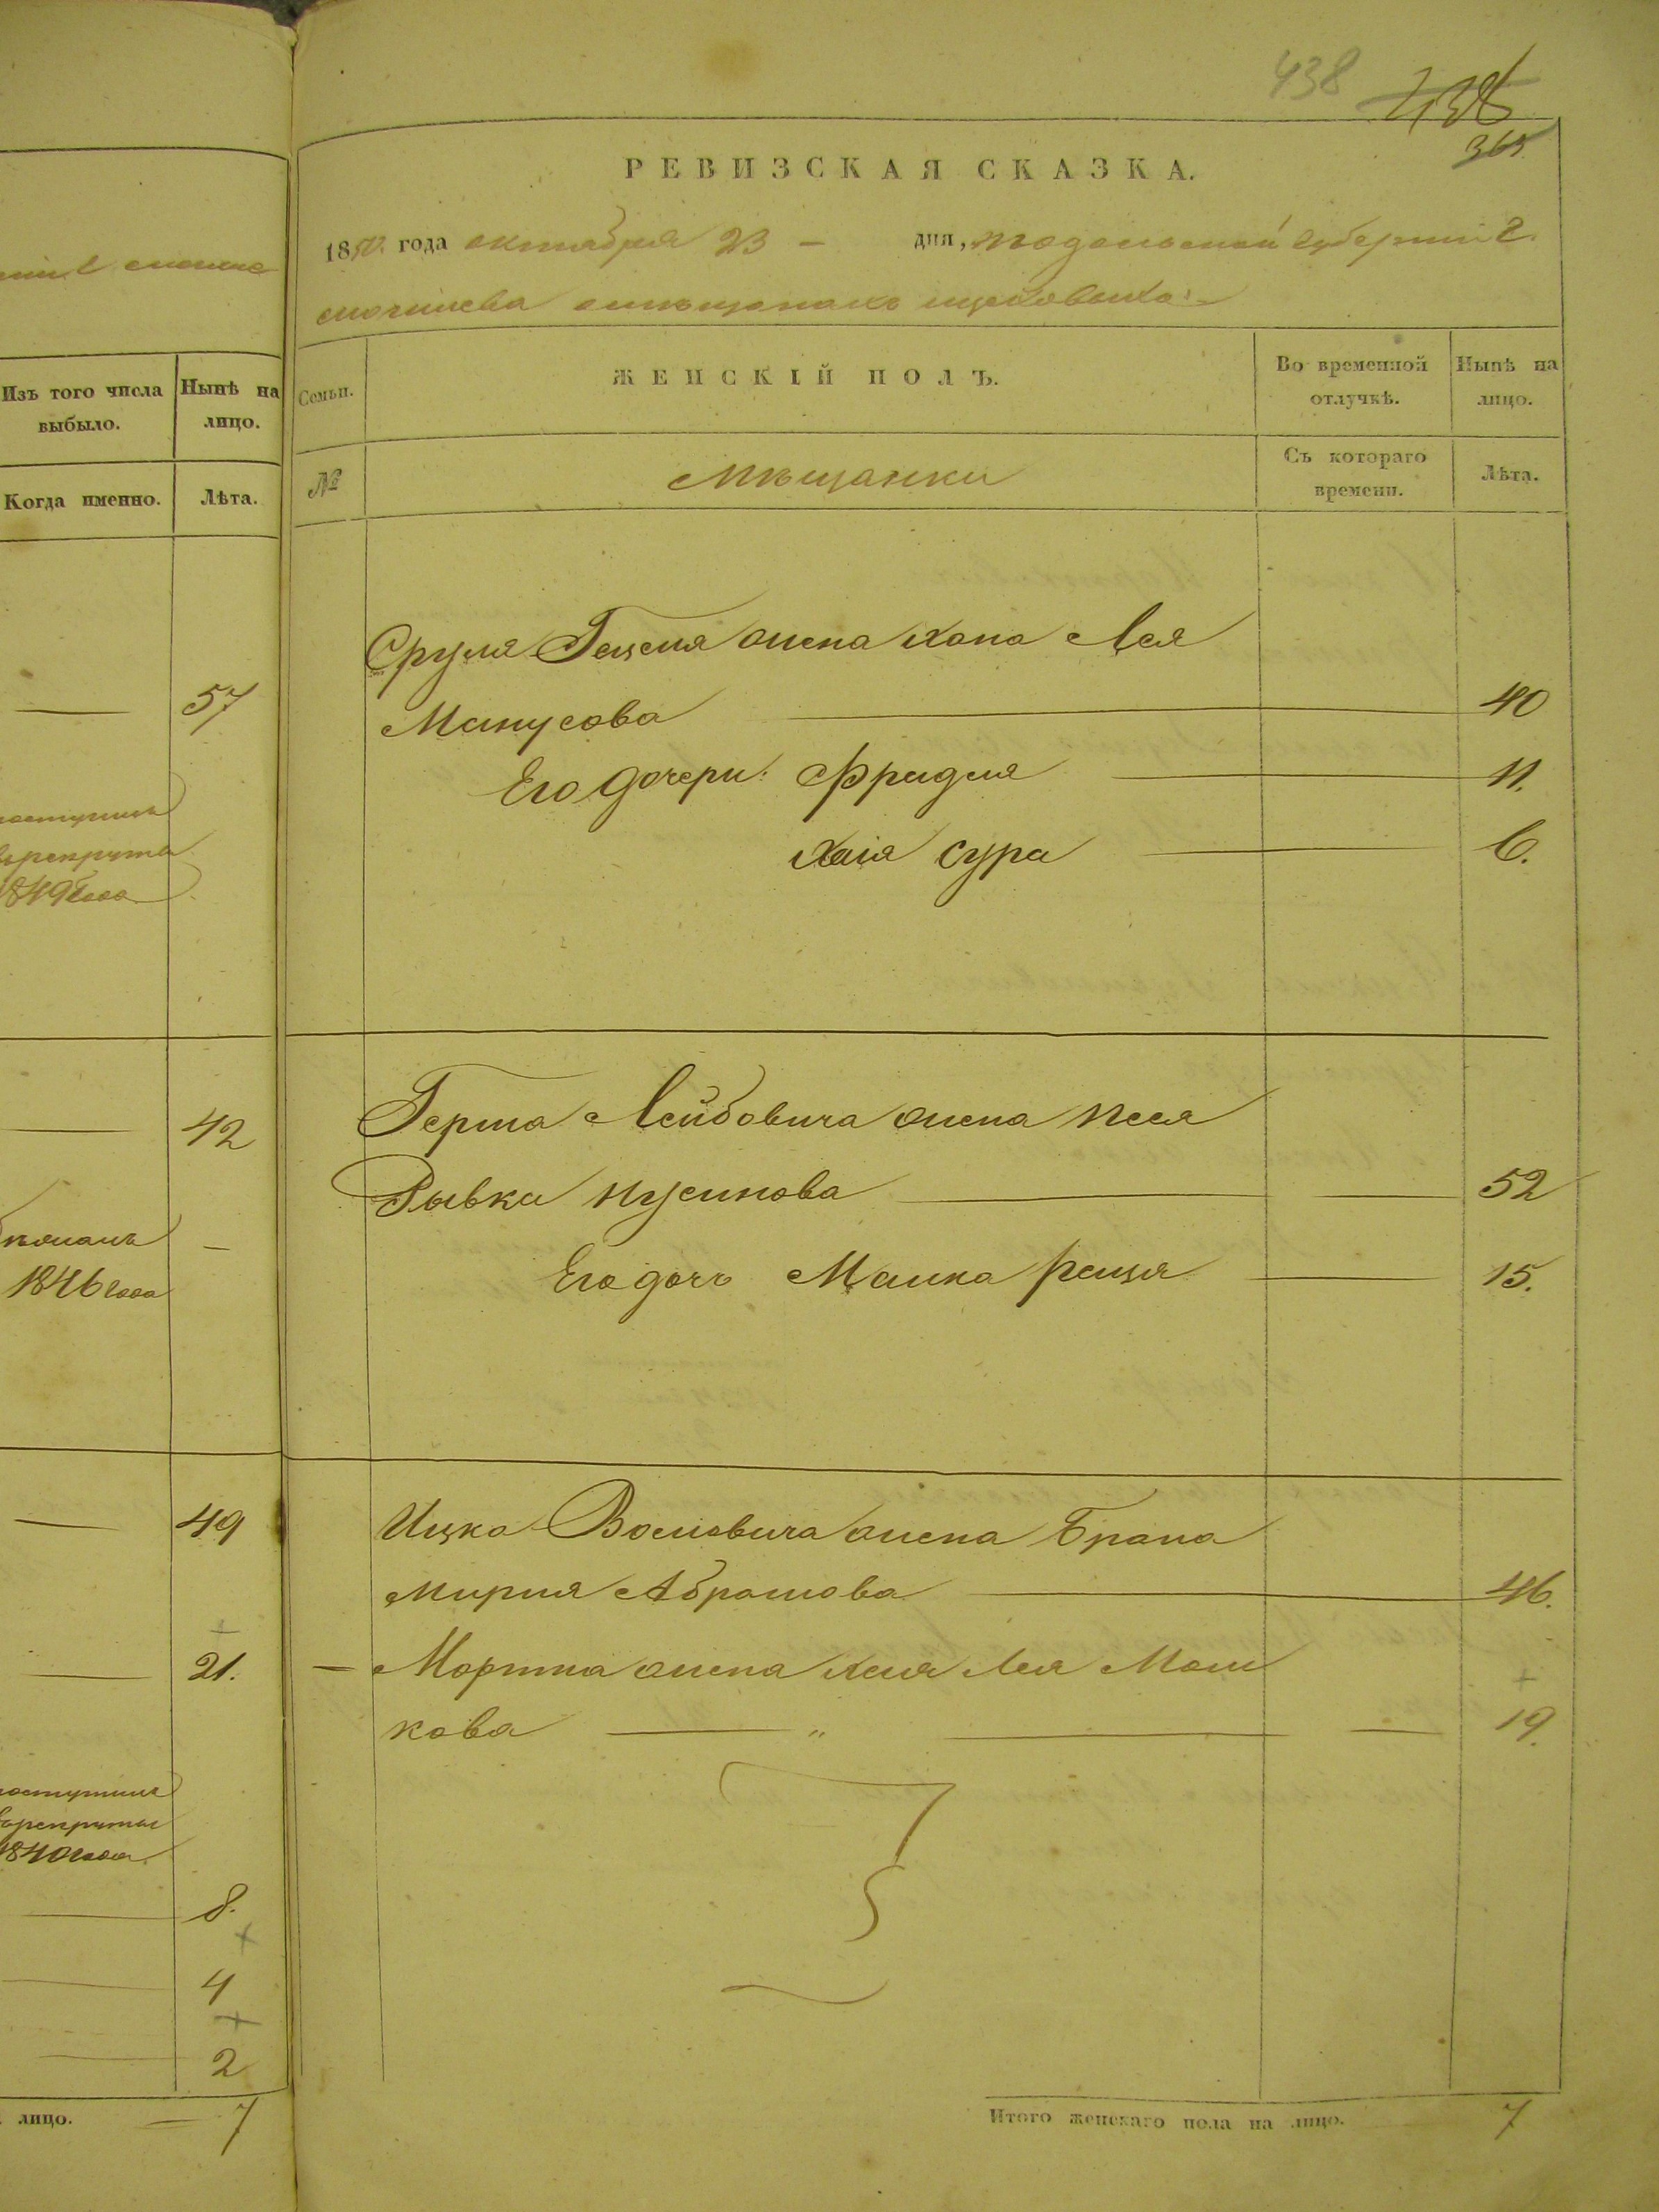 438 438
365
РЕВИЗСКАЯ СКАЗКА.
1850 года октября 23 – дня, Подольской губерніи г.
Могилева о мѣщанахъ
Изъ того числа выбыло.
Нынѣ на лицо.
Когда именно.
Лѣта.
Семьи.
ЖЕНСКІЙ ПОЛЪ.
Во временной отлучкѣ.
Нынѣ на лицо.
№
Мѣщанки
Съ котораго времени.
Лѣта.
57
1849 года
42
1846 года
49
21.
1840 года
8.
4
2
лицо. — 7
Сруля Гецеля жена Хана Лея
Манусова — 40
Его дочери: Фридля — 11.
Хаія Сура — 6.
Герша Лейбовича жена Песя
Рывка Нусинова — 52
Его дочь Малка Рейзя — 15.
Ицка Волковича жена Брана
Миріля Абрамова — 46.
— Мортка жена Хая Лея Мош
кова — „ — 19.
Итого женскаго пола на лицо. 7